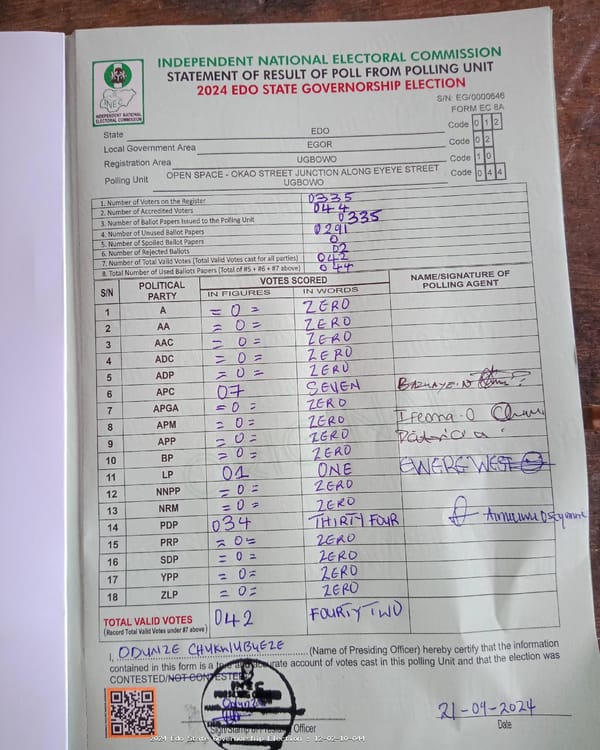 INDEPENDENT NATIONAL ELECTORAL COMMISSION
STATEMENT OF RESULT OF POLL FROM POLLING UNIT
2024 EDO STATE GOVERNORSHIP ELECTION
INDEPENDENT NATIONAL ELECTORAL COMMISSION
S/N: EG/0000646
FORM EC 8A
State EDO Code 0 1 2
Local Government Area EGOR Code 0 2
Registration Area UGBOWO Code 1 0
Polling Unit OPEN SPACE - OKAO STREET JUNCTION ALONG EYEYE STREET UGBOWO Code 0 4 4
1. Number of Voters on the Register 0335
2. Number of Accredited Voters 044
3. Number of Ballot Papers Issued to the Polling Unit 0335
4. Number of Unused Ballot Papers 0291
5. Number of Spoiled Ballot Papers 0
6. Number of Rejected Ballots 02
7. Number of Total Valid Votes (Total Valid Votes cast for all parties) 042
8. Total Number of Used Ballots Papers (Total of #5 + #6 + #7 above) 044
S/N POLITICAL PARTY VOTES SCORED NAME/SIGNATURE OF POLLING AGENT
IN FIGURES IN WORDS
1 A = 0 = ZERO
2 AA = 0 = ZERO
3 AAC = 0 = ZERO
4 ADC = 0 = ZERO
5 ADP = 0 = ZERO
6 APC 07 SEVEN
7 APGA = 0 = ZERO
8 APM = 0 = ZERO Ifeoma .O
9 APP = 0 = ZERO
10 BP = 0 = ZERO
11 LP 01 ONE
12 NNPP = 0 = ZERO
13 NRM = 0 = ZERO
14 PDP 034 THIRTY FOUR
15 PRP = 0 = ZERO
16 SDP = 0 = ZERO
17 YPP = 0 = ZERO
18 ZLP = 0 = ZERO
TOTAL VALID VOTES 042 FOURTY TWO
(Record Total Valid Votes under #7 above)
I, ODUNZE CHUKWUBYEZE (Name of Presiding Officer) hereby certify that the information
contained in this form is a true and accurate account of votes cast in this polling Unit and that the election was
CONTESTED/NOT CONTESTED
21-09-2024
Officer Date
2024 Edo State Governorship Election - 12-02-10-044